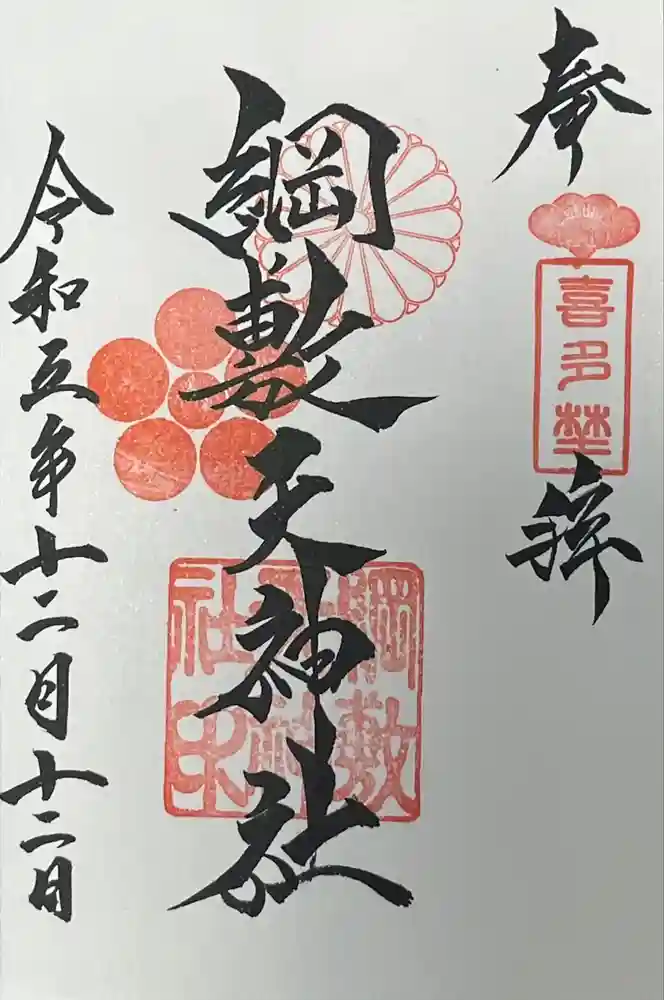 奉
喜多埜
拝
綱敷天神社
綱敷天神社印
令和五年十二月十二日